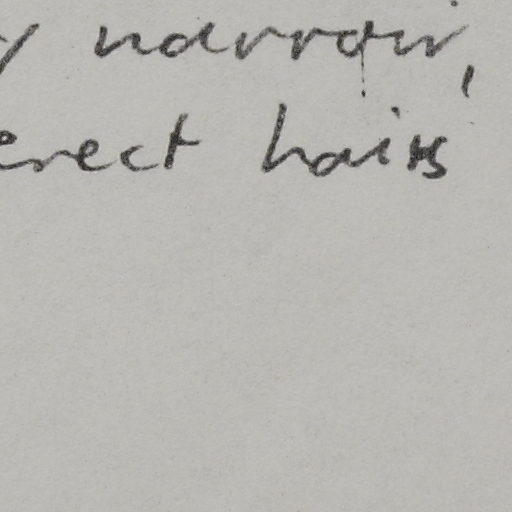 y narrow,
erect hairs